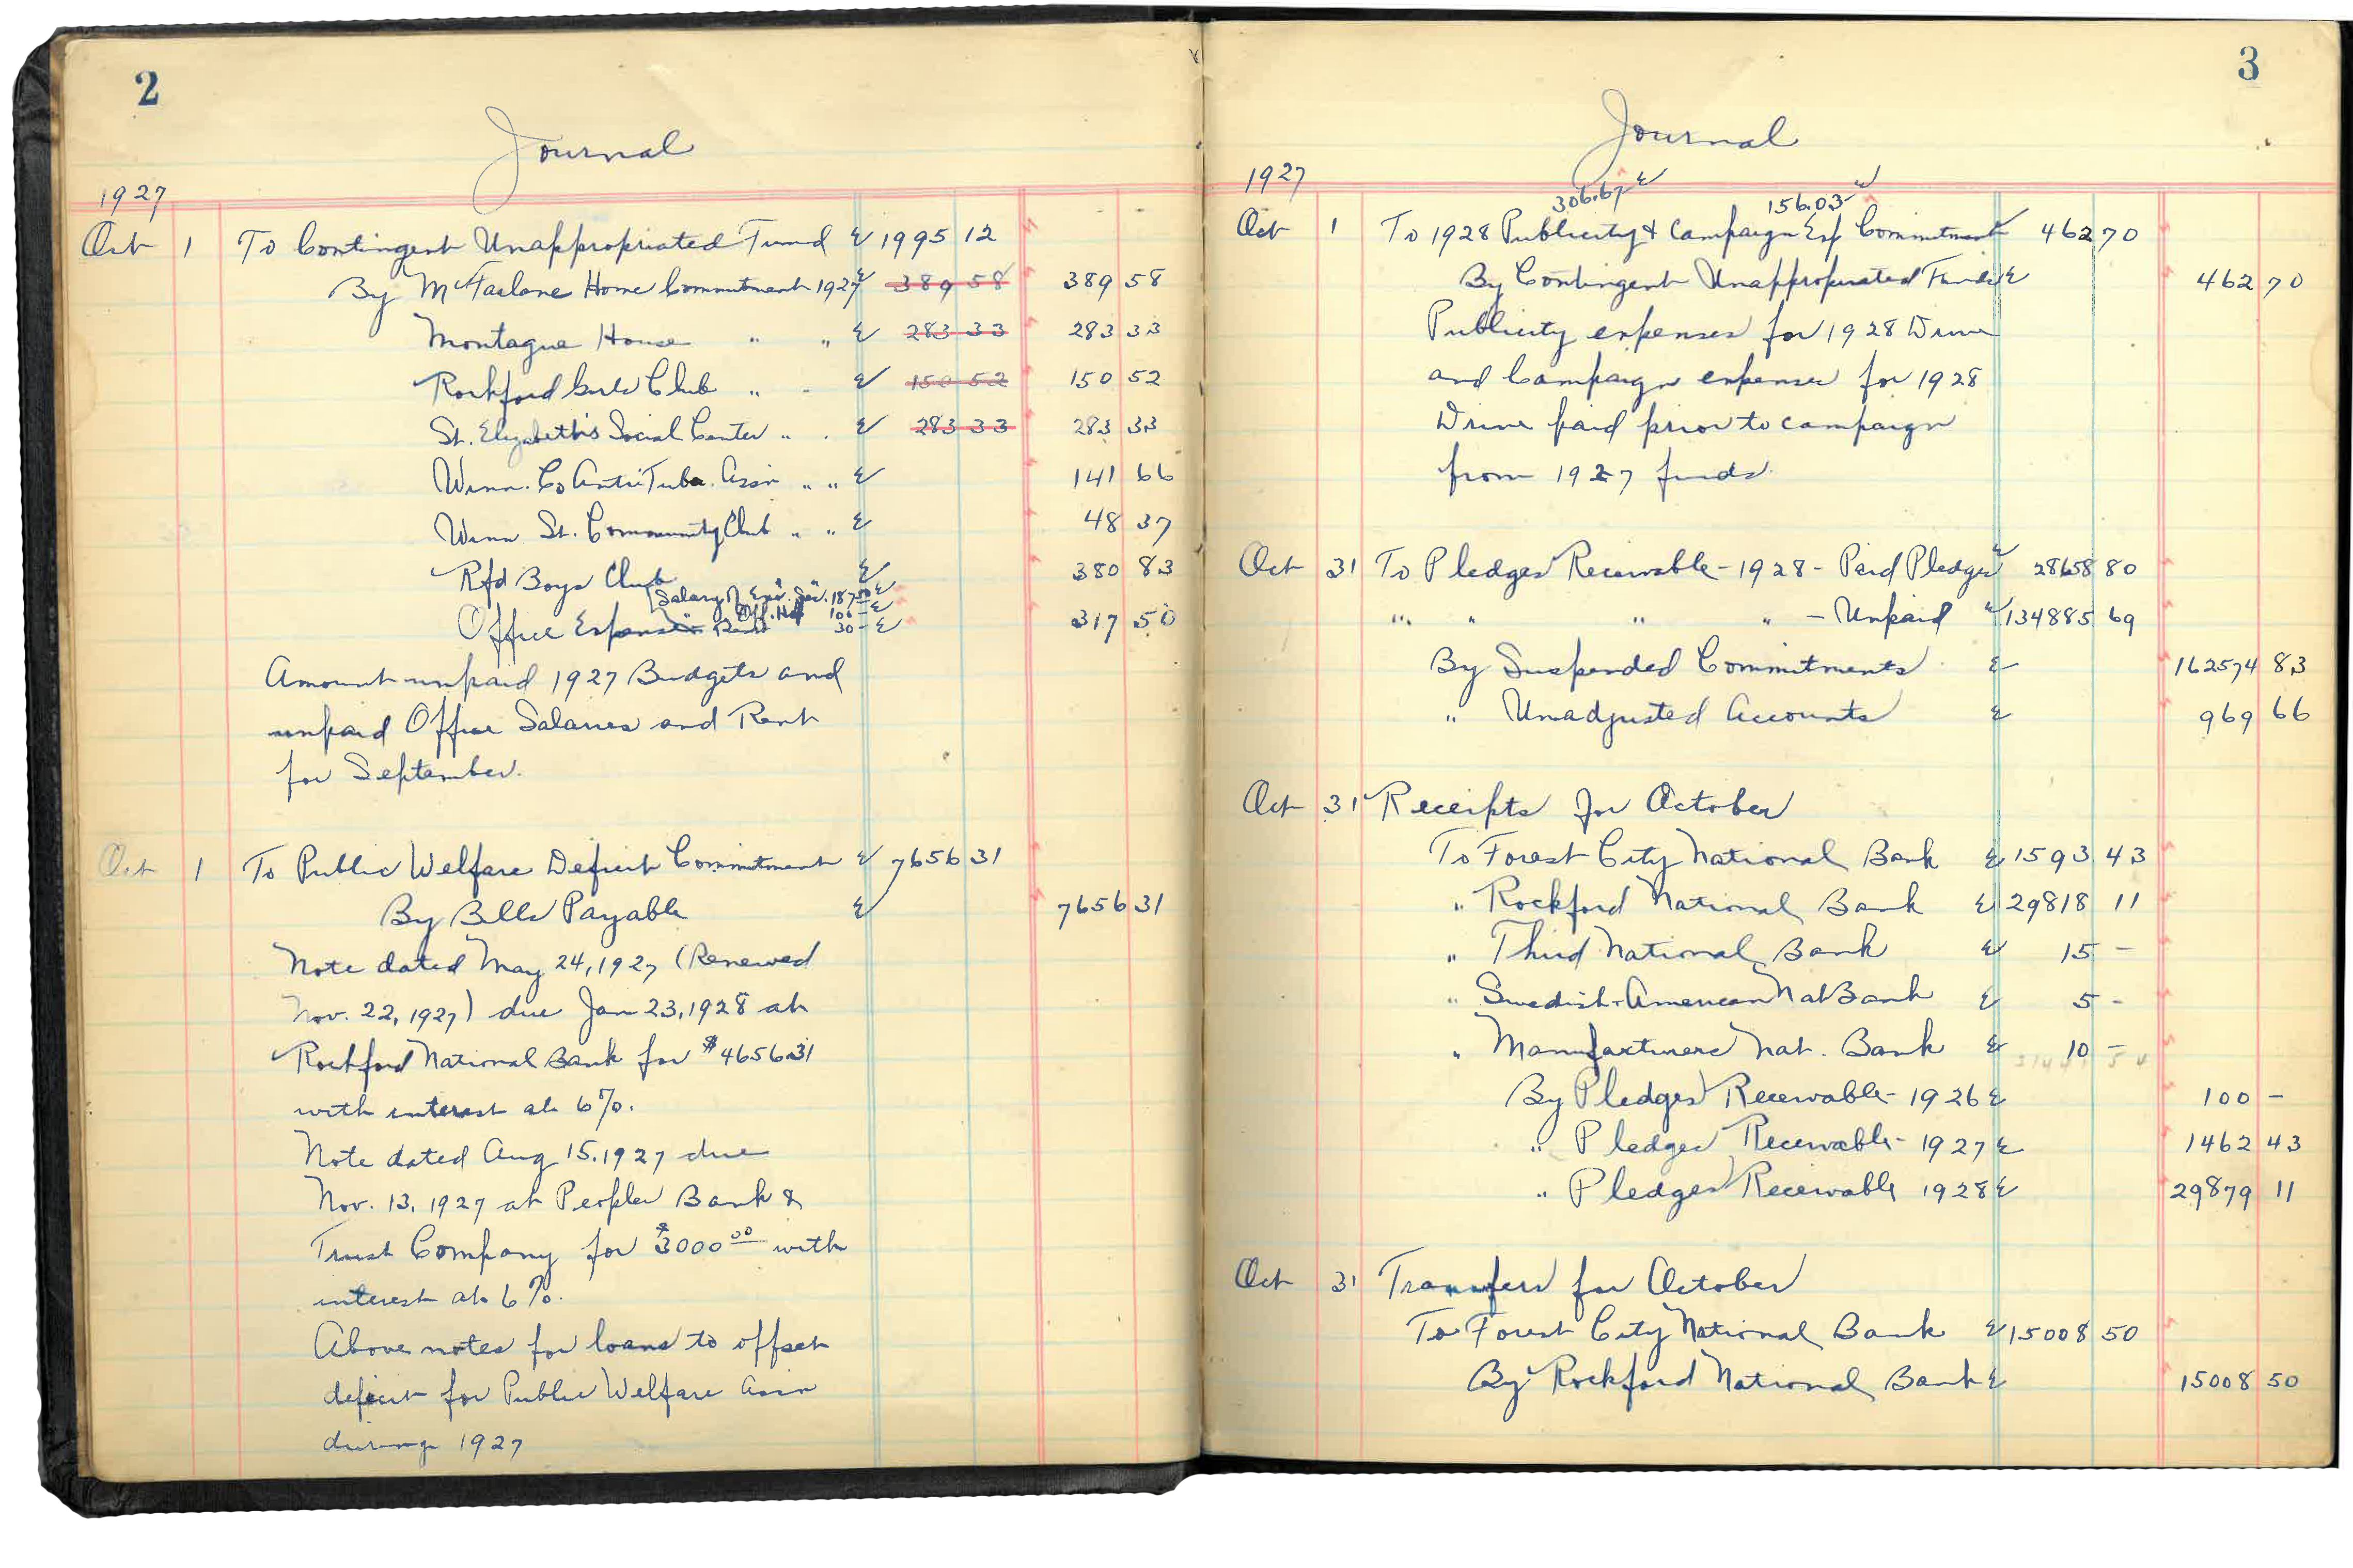 2
Journal
1927
Oct 1 To Contingent Unappropriated Fund 1995 12
By McFarlane Home Commitment 1927 389 58 389 58
Montague House " " 283 33 283 33
Rockford Girls Club " " 150 52 150 52
St. Elizabeth's Social Center " " 283 33 283 33
Winn. Co Anti Tub. Assn " " 141 66
Winn. St. Community Club " " 48 37
Rfd Boys Club 380 83
Salary of Exe. Sec. 187.50
" Off. Help 100 -
Office Expense Rent 30 - 317 50
Amount unpaid 1927 Budgets and
unpaid Office Salaries and Rent
for September.
Oct 1 To Public Welfare Deficit Commitment 7656 31
By Bills Payable 7656 31
Note dated May 24, 1927 (Renewed
Nov. 22, 1927) due Jan 23, 1928 at
Rockford National Bank for $4656.31
with interest at 6%.
Note dated Aug 15, 1927 due
Nov. 13, 1927 at Peoples Bank &
Trust Company for $3000 00 with
interest at 6%.
Above notes for loans to offset
deficit for Public Welfare Assn
during 1927
3
Journal
1927
306.67 156.03
Oct 1 To 1928 Publicity & Campaign Exp Commitment 462 70
By Contingent Unappropriated Funds 462 70
Publicity expenses for 1928 Drive
and Campaign expenses for 1928
Drive paid prior to campaign
from 1927 funds.
Oct 31 To Pledges Receivable - 1928 - Paid Pledges 28658 80
" " " " - Unpaid 134885 69
By Suspended Commitments 162574 83
" Unadjusted Accounts 969 66
Oct 31 Receipts for October
To Forest City National Bank 1593 43
" Rockford National Bank 29818 11
" Third National Bank 15 -
" Swedish-American Nat Bank 5 -
" Manufacturers Nat. Bank 10 -
31441 54
By Pledges Receivable - 1926 100 -
" Pledges Receivable - 1927 1462 43
" Pledges Receivable 1928 29879 11
Oct 31 Transfers for October
To Forest City National Bank 15008 50
By Rockford National Bank 15008 50